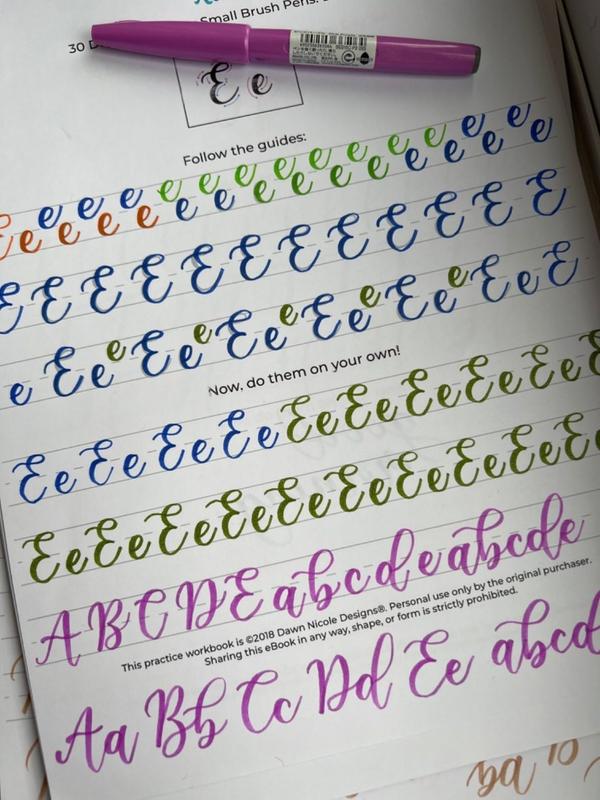 Small Brush Pens:
30 D
E e
Follow the guides:
e e e e e e e e e e e e e
e e e e e e e e e e e e e e
E E E E E E E E E E E E
e e e e e
e Ee Ee Ee Ee Ee Ee E
Now, do them on your own!
Ee Ee Ee Ee Ee Ee Ee Ee Ee E
Ee Ee Ee Ee Ee Ee Ee Ee Ee E
A B C D E a b c d e abcde
This practice workbook is ©2018 Dawn Nicole Designs®. Personal use only by the original purchaser.
Sharing this eBook in any way, shape, or form is strictly prohibited.
Aa Bb Cc Dd Ee abcd